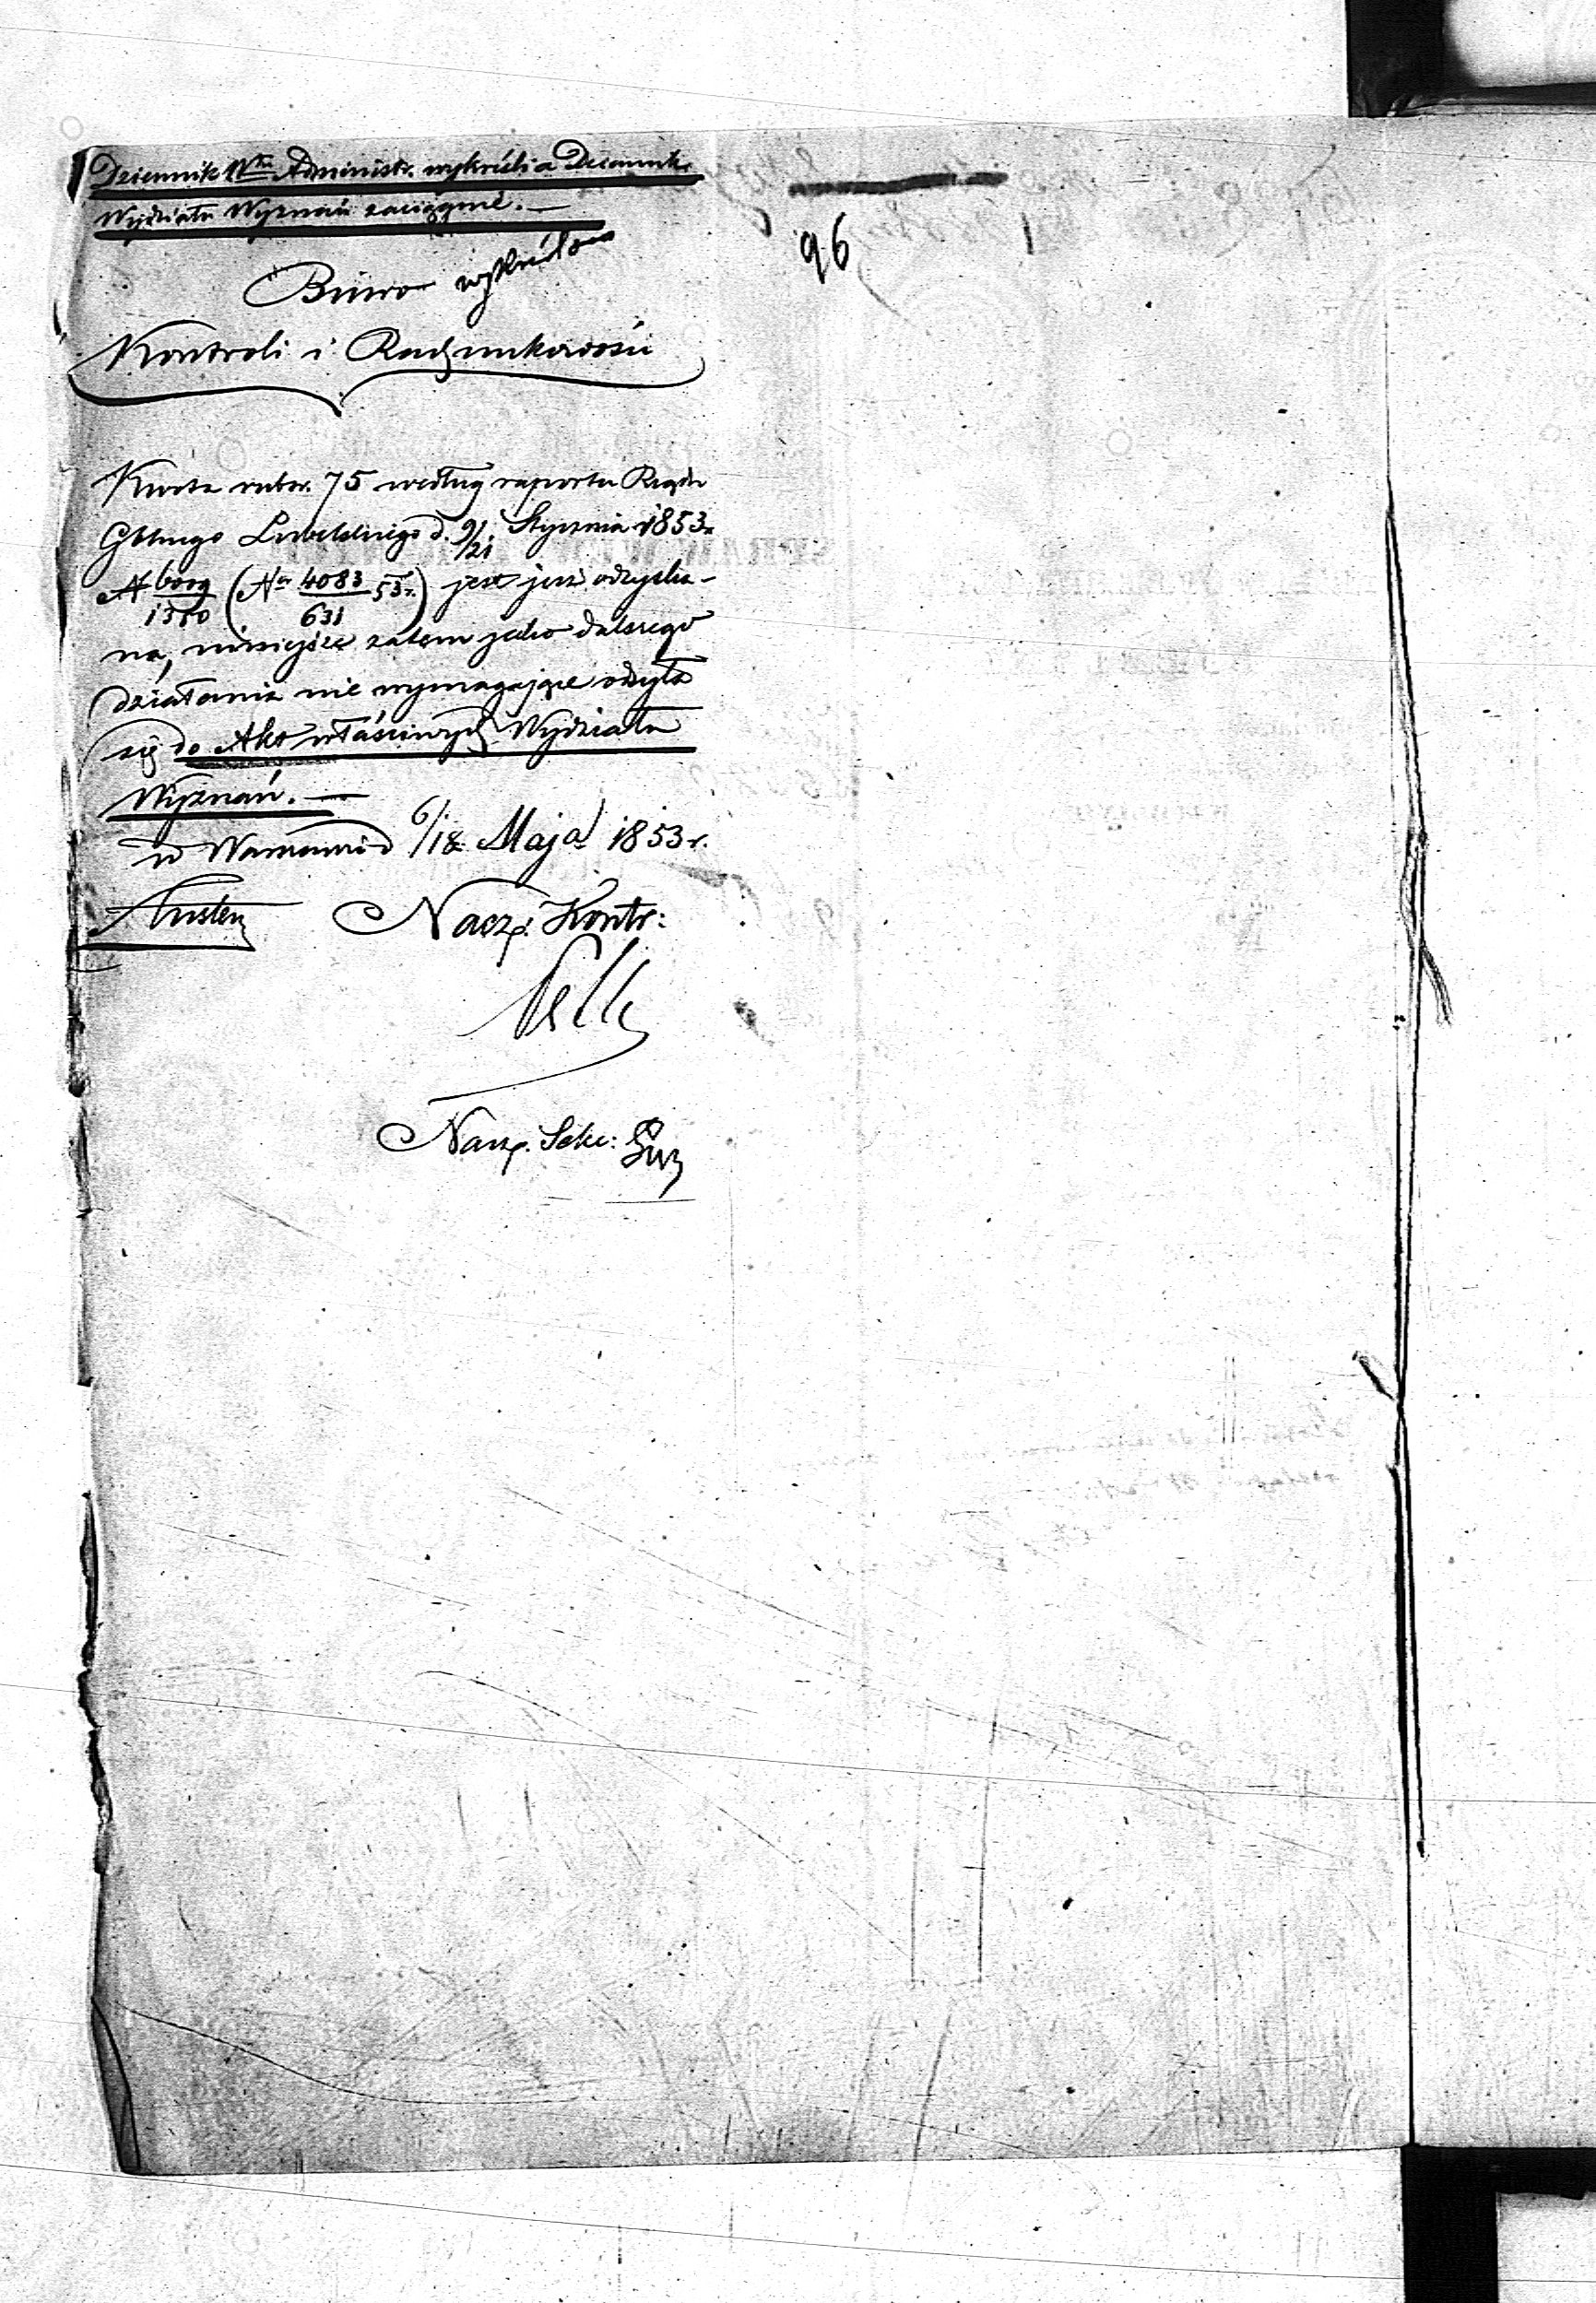 Dziennik Włu Administr. wykréśli a Dziennik
Wydziału Wyznań zaciągnie. —
96
Biuro wykréślono
Kontroli i Rachunkowości
Kwota rubsr. 75 według raportu Rządu
Gblnego Lubelskiego d. 9/21 Stycznia 1853 r.
N (Nr 4083/631 53 r.) jest już odzyska-
na, niniejsze zatem jako dalszego
działania nie wymagające odsyła
się do Akt właściwych Wydziału
Wyznań. —
w Warszawie d 6/18 Maja 1853 r.
Nacz. Kontr:
Nacz. Sekc: